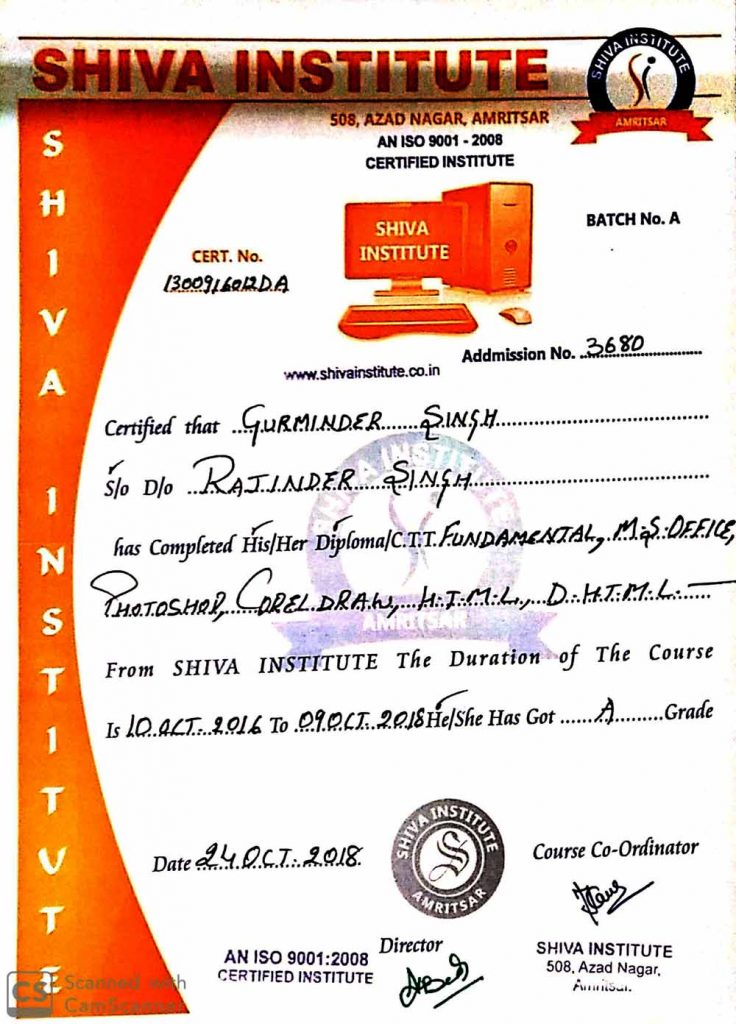 SHIVA INSTITUTE
SHIVA INSTITUTE
AMRITSAR
508, AZAD NAGAR, AMRITSAR
AN ISO 9001 - 2008
CERTIFIED INSTITUTE
SHIVA INSTITUTE
SHIVA
INSTITUTE
BATCH No. A
CERT. No.
1300916012DA
Addmission No. 3680
www.shivainstitute.co.in
Certified that GURMINDER SINGH
S/o D/o RAJINDER SINGH
has Completed His/Her Diploma/C.T.T. FUNDAMENTAL, M.S. OFFICE,
PHOTOSHOP, COREL DRAW, H.T.M.L., D.H.T.M.L.
SHIVA INSTITUTE
AMRITSAR
From SHIVA INSTITUTE The Duration of The Course
Is 10 OCT. 2016 To 09 OCT. 2018 He/She Has Got A Grade
Date 24 OCT. 2018.
SHIVA INSTITUTE
AMRITSAR
Course Co-Ordinator
Director
AN ISO 9001:2008
CERTIFIED INSTITUTE
SHIVA INSTITUTE
508, Azad Nagar,
Amritsar.
CS Scanned with
CamScanner